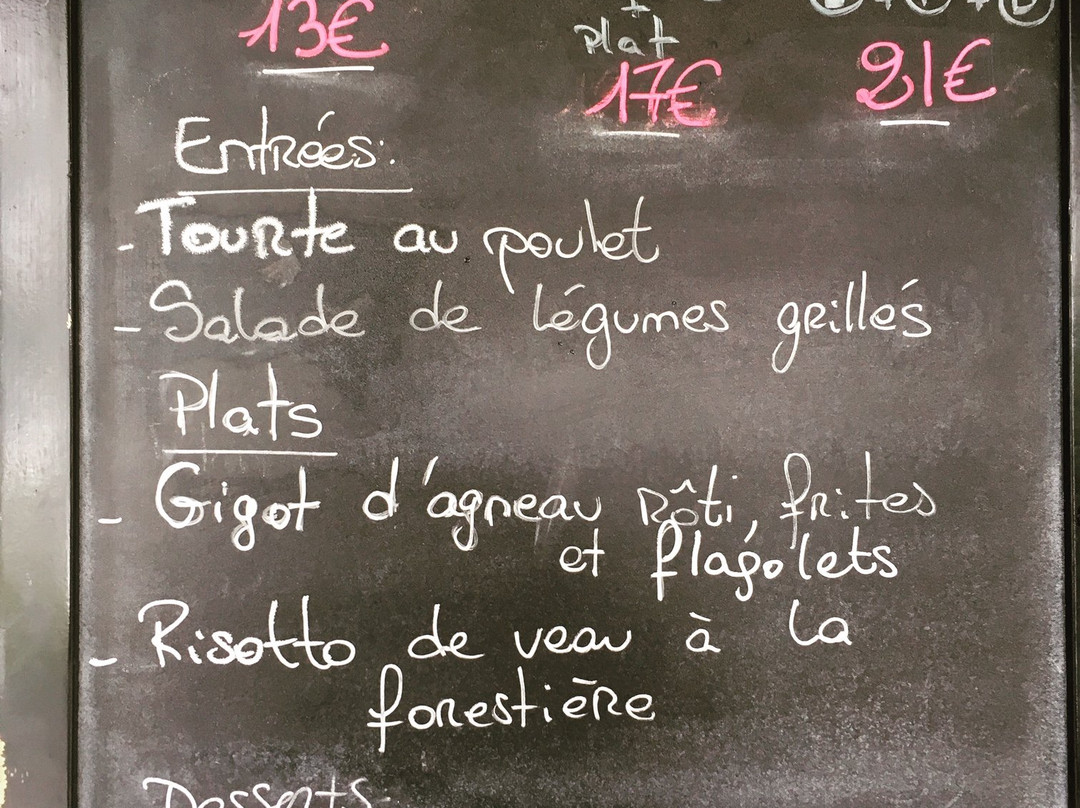 +
plat
13€ 17€ 21€
Entrées:
- Tourte au poulet
- Salade de légumes grillés
Plats
- Gigot d'agneau rôti, frites
et flageolets
- Risotto de veau à la
forestière
Desserts